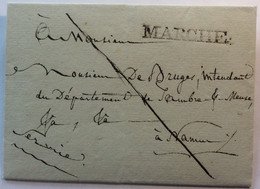 À Monsieur
MARCHE.
Monsieur De Bruges, intendant
du Département de Sambre & Meuse,
&a, &a
à Namur
Service